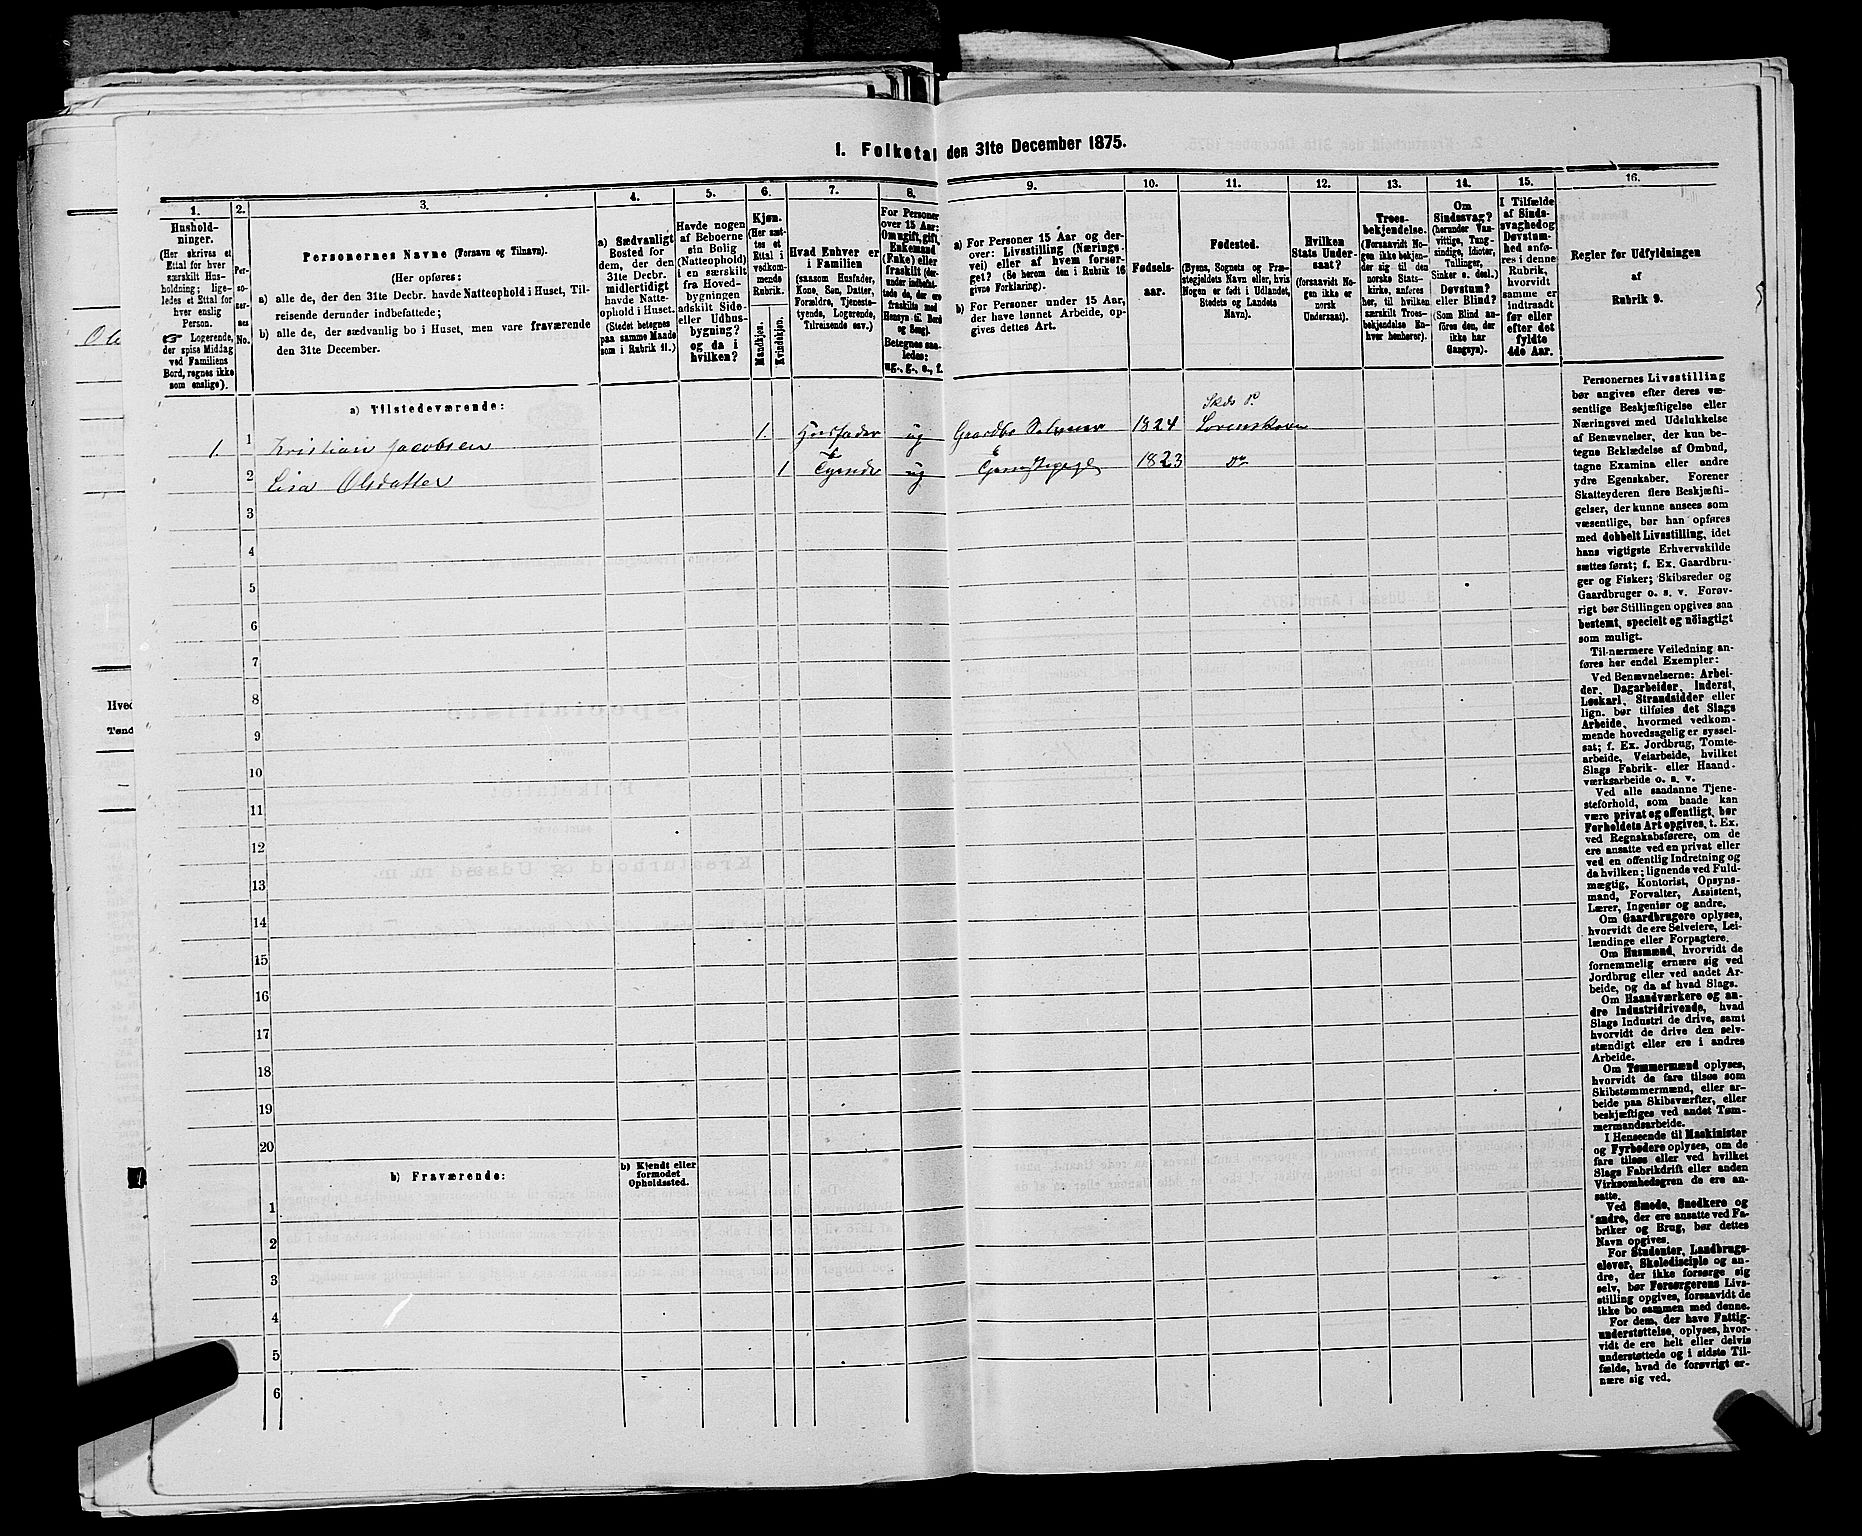 1. Folketal den 31te December 1875.
1.
Hushold-
ninger.
(Her skrives et
Ettal for hver
særskilt Hus-
holdning; lige-
ledes et Ettal for
hver enslig
Person.
☞ Logerende,
der spise Middag
ved Familiens
Bord, regnes ikke
som enslige).
2.
Per-
so-
ner-
nes
No.
3.
Personernes Navne (Fornavn og Tilnavn).
(Her opføres:
a) alle de, der den 31te Decbr. havde Natteophold i Huset, Til-
reisende derunder indbefattede;
b) alle de, der sædvanlig bo i Huset, men vare fraværende
den 31te December.
4.
a) Sædvanligt
Bosted for
dem, der den
31te Decbr.
midlertidigt
havde Natte-
ophold i Huset.
(Stedet betegnes
paa samme Maade
som i Rubrik 11.)
5.
Havde nogen
af Beboerne
sin Bolig
(Natteophold)
i en særskilt
fra Hoved-
bygningen
adskilt Side-
eller Udhus-
bygning?
og da i
hvilken?
6.
Kjøn.
(Her sæt-
tes et
Ettal i
vedkom-
mende
Rubrik.
Mandkjøn.
Kvindekjøn.
7.
Hvad Enhver er
i Familien
(saasom Husfader,
Kone, Søn, Datter,
Forældre, Tjeneste-
tyende, Logerende,
Tilreisende osv.)
8.
For Personer
over 15 Aar:
Om ugift, gift,
Enkemand
(Enke) eller
fraskilt (der-
under indbefat-
tede de, der ere
fraskilte med
Hensyn til Bord
og Seng).
Betegnes saa-
ledes:
ug., g., e., f.
9.
a) For Personer 15 Aar og der-
over: Livsstilling (Nærings-
vei) eller af hvem forsør-
get? (Se herom den i Rubrik 16
givne Forklaring).
b) For Personer under 15 Aar,
der have lønnet Arbeide, op-
gives dettes Art.
10.
Fødsels-
aar.
11.
Fødested.
(Byens, Sognets og Præ-
stegjeldets Navn eller, hvis
Nogen er født i Udlandet,
Stedets og Landets
Navn).
12.
Hvilken
Stats Under-
saat?
(forsaavidt No-
gen ikke er
norsk
Undersaat).
13.
Troes-
bekjendelse.
(Forsaavidt No-
gen ikke bekjen-
der sig til den
norske Stats-
kirke, anføres
her, til hvilken
særskilt Troes-
bekjendelse En-
hver henhører).
14.
Om
Sindssvag?
(herunder Van-
vittige, Tung-
sindige, Idioter,
Tullinger,
Sinker o. desl.)
Døvstum?
eller Blind?
(Som Blind an-
føres den, der
ikke har
Gangsyn).
15.
I Tilfælde
af Sinds-
svaghed og
Døvstum-
hed anfø-
res i denne
Rubrik,
hvorvidt
samme er
indtraadt
før eller
efter det
fyldte
4de Aar.
16.
Regler for Udfyldningen
af
Rubrik 9.
a) Tilstedeværende:
1 1 Kristian Jacobsen 1. Husfader ug Gaardbr. Selveier 1824 Lørenskoven
2 Lisa Olsdatter 1 Tyende ug 1823 Do
3
4
5
6
7
8
9
10
11
12
13
14
15
16
17
18
19
20
b) Fraværende:
b) Kjendt eller
formodet
Opholdssted.
1
2
3
4
5
6
Personernes Livsstilling
bør angives efter deres væ-
sentlige Beskjæftigelse eller
Næringsvei med Udelukkelse
af Benævnelser, der kun be-
tegne Beklædelse af Ombud,
tagne Examina eller andre
ydre Egenskaber. Forener
Skatteyderen flere Beskjæfti-
gelser, der kunne ansees som
væsentlige, bør han opføres
med dobbelt Livsstilling, idet
hans vigtigste Erhvervskilde
sættes først; f. Ex. Gaardbru-
ger og Fisker; Skibsreder og
Gaardbruger o. s. v. Forøv-
rigt bør Stillingen opgives saa
bestemt, specielt og nöiagtigt
som muligt.
Til nærmere Veiledning an-
føres her endel Exempler:
Ved Benævnelserne: Arbei-
der, Dagarbeider, Inderst,
Løskarl, Strandsidder eller
lign. bør tilføies det Slags
Arbeide, hvormed vedkom-
mende hovedsagelig er syssel-
sat; f. Ex. Jordbrug, Tomte-
arbeide, Veiarbeide, hvilket
Slags Fabrik- eller Haand-
værksarbeide o. s. v.
Ved alle saadanne Tjene-
steforhold, som baade kan
være privat og offentligt, bør
Forholdets Art opgives, t. Ex.
ved Regnskabsførere, om de
ere ansatte ved en privat eller
ved en offentlig Indretning og
da hvilken; lignende ved Fuld-
mægtig, Kontorist, Opsyns-
mand, Forvalter, Assistent,
Lærer, Ingeniør og andre.
Om Gaardbrugere oplyses,
hvorvidt de ere Selveiere, Lei-
lændinge eller Forpagtere.
Om Husmænd, hvorvidt de
fornemmelig ernære sig ved
Jordbrug eller ved andet Ar-
beide, og da af hvad Slags.
Om Haandværkere og an-
dre Industridrivende, hvad
Slags Industri de drive, samt
hvorvidt de drive den selv-
stændigt eller ere i andres
Arbeide.
Om Tømmermænd oplyses,
hvorvidt de fare tilsøs som
Skibstømmermænd, eller ar-
beide paa Skibsværfter, eller
beskjæftiges ved andet Tøm-
mermandsarbeide.
I Henseende til Maskinister
og Fyrbødere oplyses, om de
fare tilsøs eller ved hvilket
Slags Fabrikdrift eller anden
Virksomhedsgren de ere an-
satte.
Ved Smede, Snedkere og
andre, der ere ansatte ved Fa-
briker og Brug, bør dettes
Navn opgives.
For Studenter, Landbrugs-
elever, Skoledisciple og an-
dre, der ikke forsørge sig
selv, bør Forsørgerens Livs-
stilling opgives, forsaavidt de
ikke bo sammen med denne.
For dem, der have Fattig-
understøttelse, oplyses, hvor-
vidt de ere helt eller delvis
understøttede og i sidste Til-
fælde, hvad de forøvrigt er-
nære sig ved.
Hved
Tønd